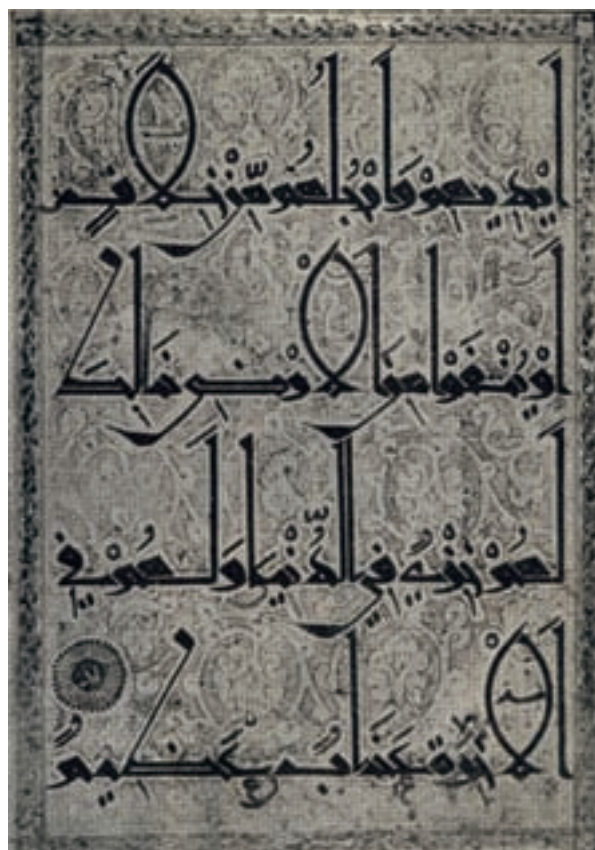 أَيْدِيهِمْ وَأَرْجُلُهُم مِّنْ خِلَافٍ
أَوْ يُنفَوْا مِنَ الْأَرْضِ ذَلِكَ
لَهُمْ خِزْيٌ فِي الدُّنْيَا وَلَهُمْ فِي
الْآخِرَةِ عَذَابٌ عَظِيمٌ